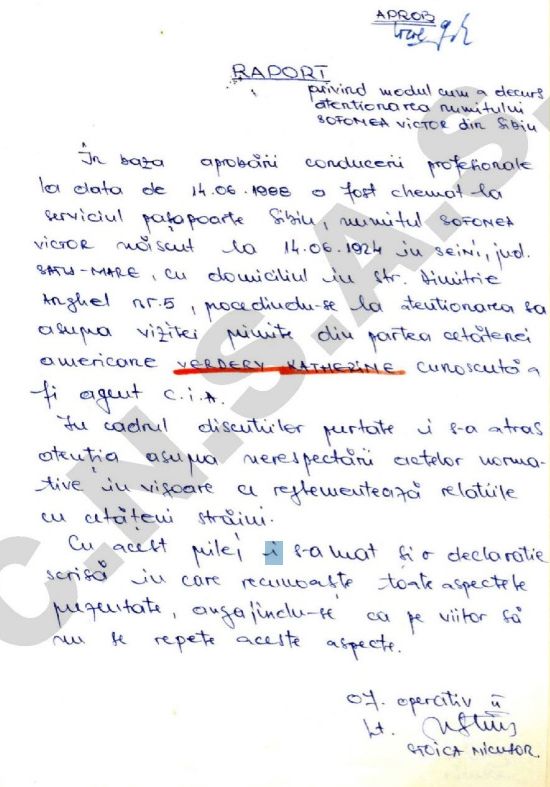 APROB
RAPORT
privind modul cum a decurs
atenționarea numitului
SOFONEA VICTOR din Sibiu
În baza aprobării conducerii profesionale
la data de 14.06.1988 a fost chemat la
serviciul pașapoarte Sibiu, numitul SOFONEA
VICTOR născut la 14.06.1924 in SEINI, jud.
SATU-MARE, cu domiciliul in str. Dimitrie
Anghel nr. 5, procedîndu-se la atentionarea sa
asupra vizitei primite din partea cetătenei
americane VERDERY KATHERINE cunoscută a
fi agent C.I.A.
In cadrul discutiilor purtate i s-a atras
atenția asupra nerespectării actelor norma-
tive in vigoare ce reglementează relatiile
cu cetățeni străini.
Cu acest prilej i s-a luat și o declaratie
scrisă in care recunoaște toate aspectele
prezentate, angajîndu-se ca pe viitor să
nu se repete aceste aspecte.
Of. operativ II
Lt.
STOICA NICUȘOR.
C.N.S.A.S.